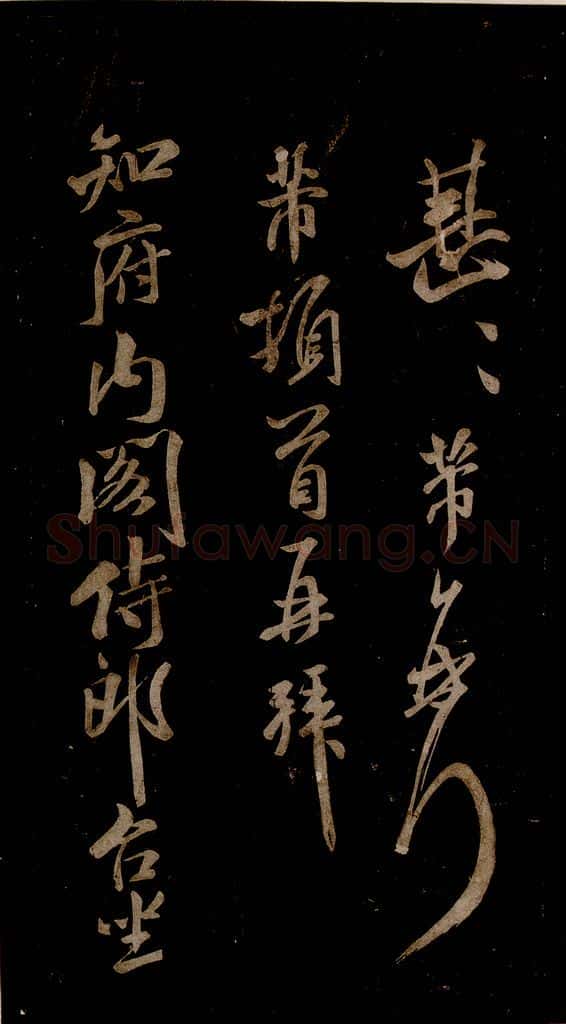 甚〻芾
芾頓首再拜
知府內閣侍郎台坐
Shufawang.CN